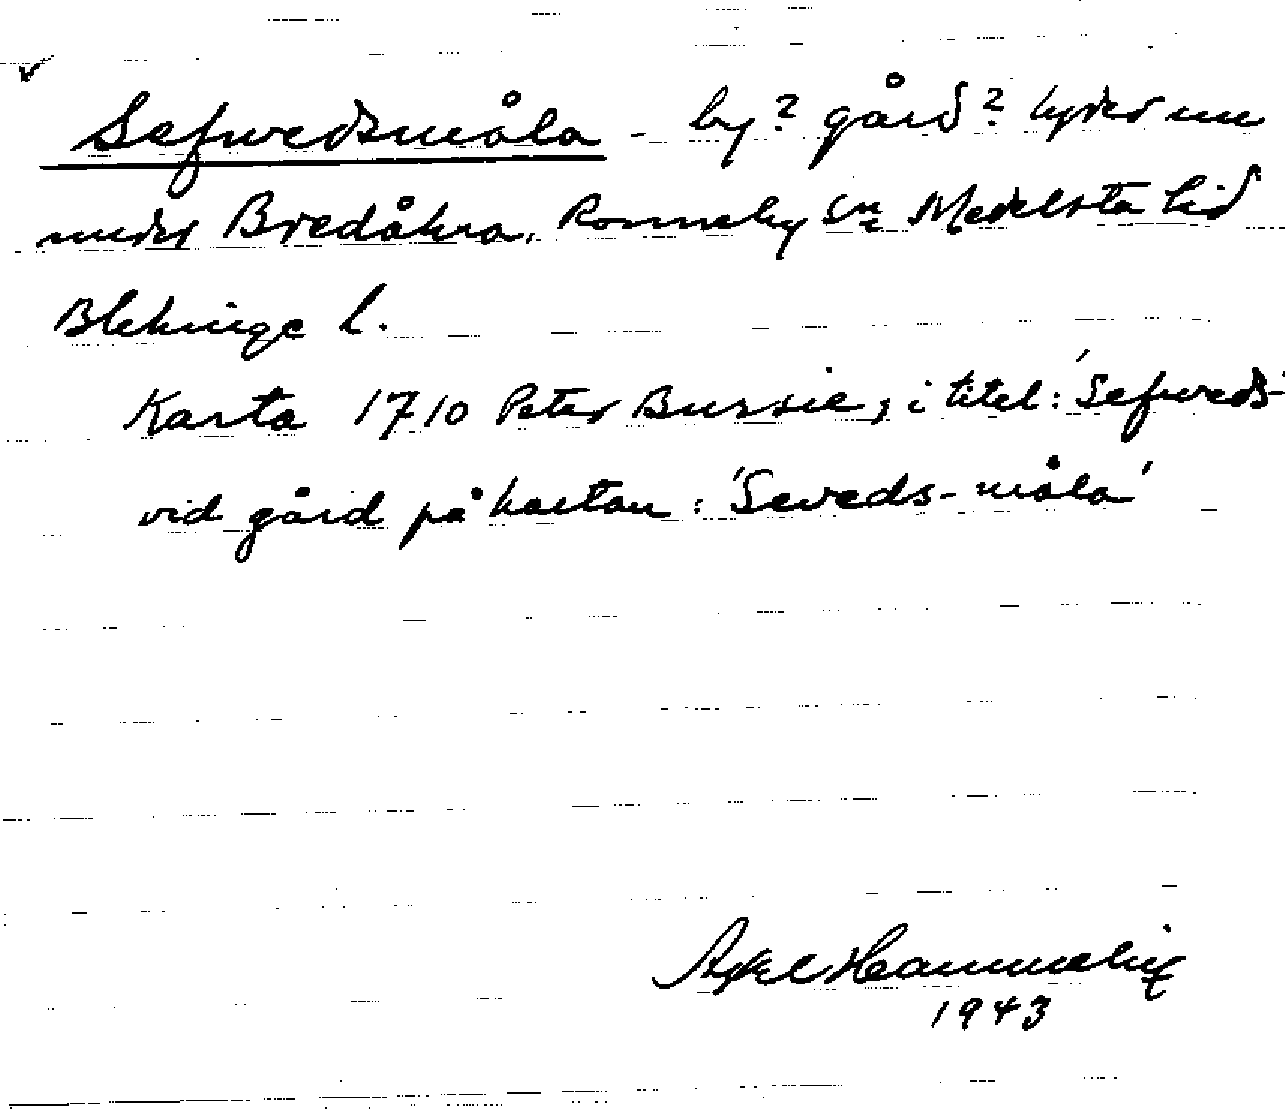 Sefwedsmåla - by? gård? lyder nu
under Bredåkra, Ronneby sn Medelsta hd
Blekinge l.
Karta 1710 Peter Bussie, i titel: 'Sefweds-'
vid gård på kartan: 'Seveds-måla'
Axel
1943